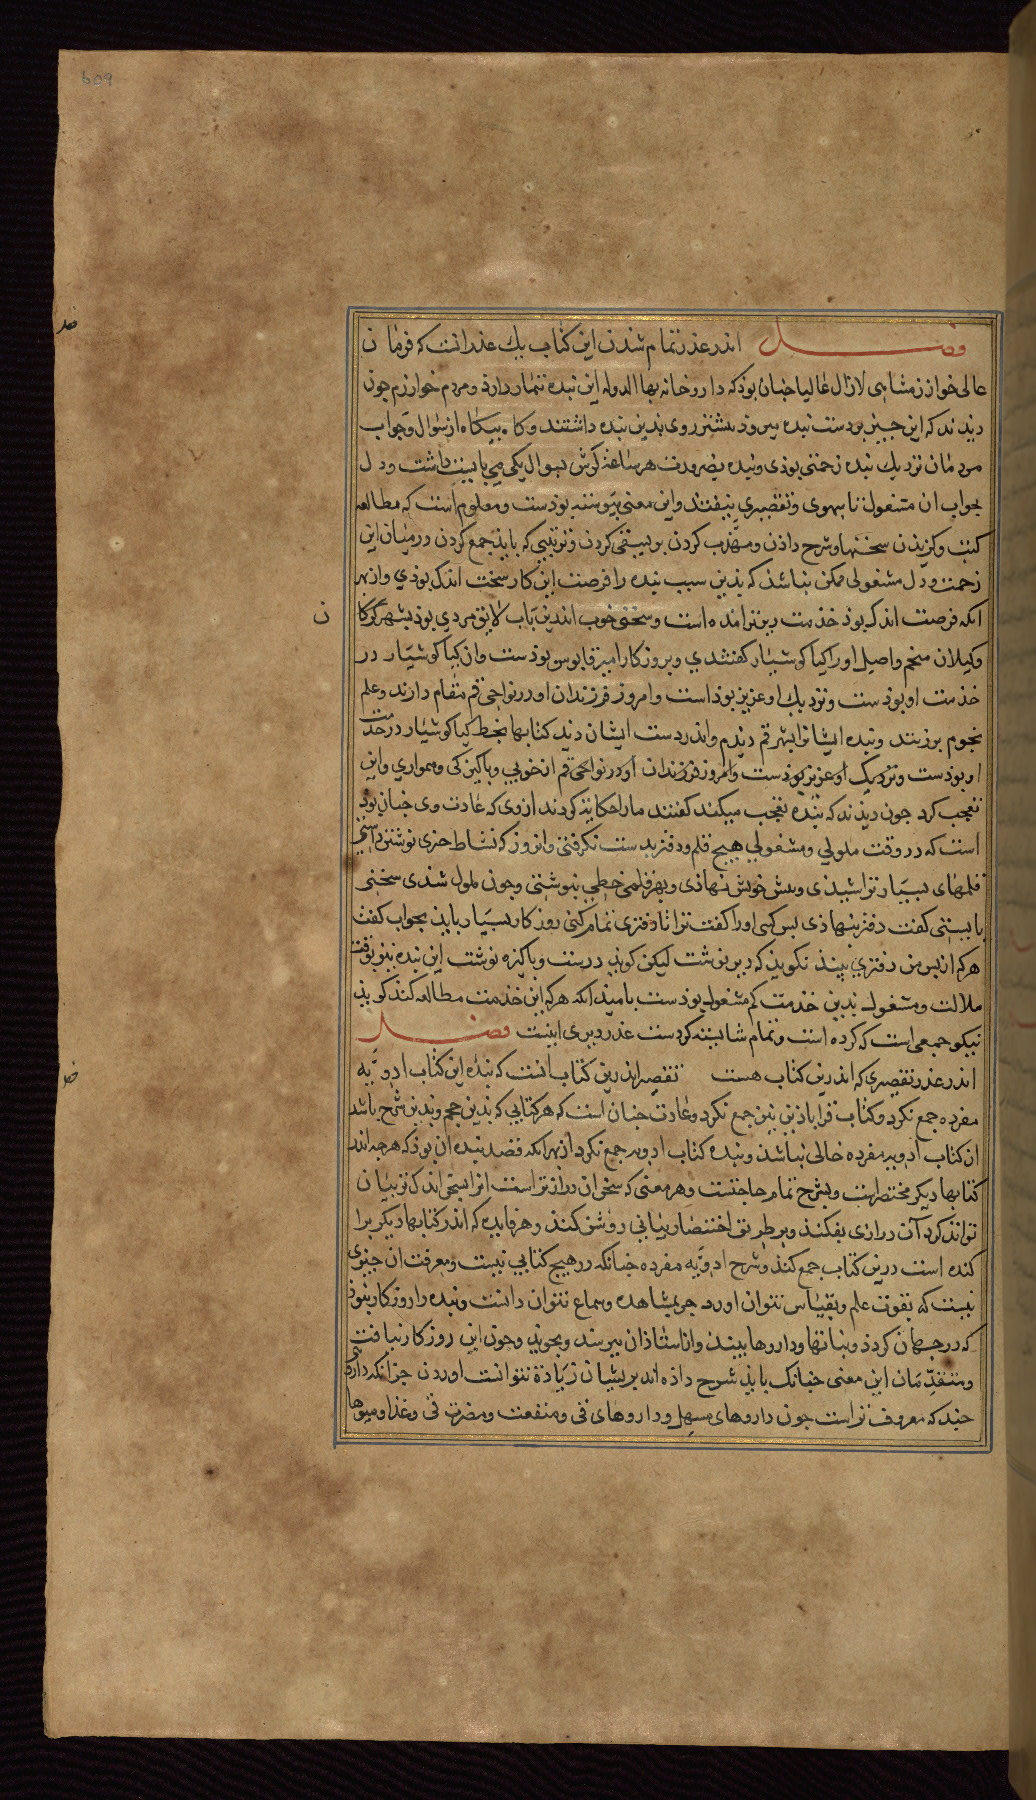 609
فصل اندر عذر تمام شدن این کتاب یك عذر انست که فرمان
عالی خوارزمشاهی لازال عالیا جنان بوذ که داروخانه بهاالدوله این بنده تیمار دارذ ومردم خوارزم جون
دیذند که این جیز بردست بنده میروذ بیشتر روی بذین بنده داشتند وکاه بیکاه از سوال وجواب
مردمان نزدیك بنده زحمتی بوذی وبنده بضرورت هرساعت کوش بسوال یکی می بایست داشت ودل
بجواب ان مشغول تا سهوی وتقصیری نیفتد واین معنی پیوسته بوذست ومعلوم است که مطالعه
کتب وکزیدن سخنها وشرح داذن ومهذب کردن بر نسقی کردن وترتیبی که بایذ جمع کردن در میان این
زحمت ودل مشغولی ممکن نباشذ که بذین سبب بنده را فرصت این کار سخت اندك بوذی وازبهر
انکه فرصت اندك بوذ خذمت دیرتر امذه است وسخنی خوب اندرین باب لایق مردی بوذ بشهر کرکا
ن
وکیلان منجم واصیل اورا کیا کوشیار کفتندی وبروزکار امیر قابوس بوذست وان کیا کوشیار در
خذمت او بوذست ونزدیك او عزیز بوذاست وامروز فرزندان او در نواحی قم مقام دارند وعلم
نجوم برزیند وبنده ایشانرا بشهر قم دیذم واندر دست ایشان دیذ کتابها بخط کیا کوشیار در خذمت
او بوذست ونزدیک او عزیز بوذست وامروز فرزندان او در نواحی قم از خوبی وپاکیزکی وهمواری واین
تعجب کرد جون دیذند که بنده تعجب میکند کفتند مارا حکایة کردند ازوی که عادت وی جنان بوذ
است که در وقت ملولی ومشغولی هیج قلم ودفتر بدست نکرفتی وانروز که نشاط جیزی نوشتن داشتی
قلمهای بسیار تراشیذی وپیش خویش بنهاذی وبهر قلمی خطی بنوشتی وجون ملول شذی سخنی
بایستی کفت دفتر بنهاذی پس کسی اورا کفت ترا تا دفتری تمام کنی روزکار بسیار بایذ بجواب کفت
هرکه از پس من دفتری بینذ نکویذ که دیر نوشت لیکن کویذ درست وپاکیزه نوشت این بنده نیز بوقت
ملالت ومشغولی بذین خذمت کم مشغول بوذست بامیذ انکه هرکه این خذمت مطالعه کند کویذ
نیکو جمعی است که کرده است وتمام شایسته کردست عذر دیری اینست فصل
اندر عذر تقصیری که اندرین کتاب هست تقصیر اندرین کتاب انست که بنده این کتاب ادویه
مفرده جمع نکرد وکتاب قراباذین نیز جمع نکرد وعادت جنان است که هر کتابی که بذین حجم وبذین شرح باشد
ان کتاب ادویه مفرده خالی نباشذ وبنده کتاب ادویه جمع نکرد ازبهر انکه قصد بنده ان بوذ که هرجه اندر
کتابها دیکر مختصر است وبشرح تمام حاجتست وهر معنی که سخن ان دراز تر است انرا بسخنی اندك تر بیان
تواند کرد آن درازی بفکنذ وبر طریق اختصار بیانی روشن کنذ وهر فایده که اندر کتابها دیکر پرا
کنده است درین کتاب جمع کنذ وشرح ادویه مفرده جنانکه در هیج کتابی نیست ومعرفت ان جیزی
نیست که بقوت علم وبقیاس بتوان اورد جز بمشاهده وسماع نتوان دانست وبنده را روزکار نبوذ
که در جهان کردذ ونباتها وداروها بیند واز استاذان بپرسد وبجوید وجون این روزکار نیافت
ومتقدمان این معنی جنانک بایذ شرح داذه اند بر بیشان زیادة نتوانست اوردن جز انکه داروی
جند که معروف تراست جون داروهای مسهل وداروهای قی ومنفعت ومضرت قی وغذا ومیوها